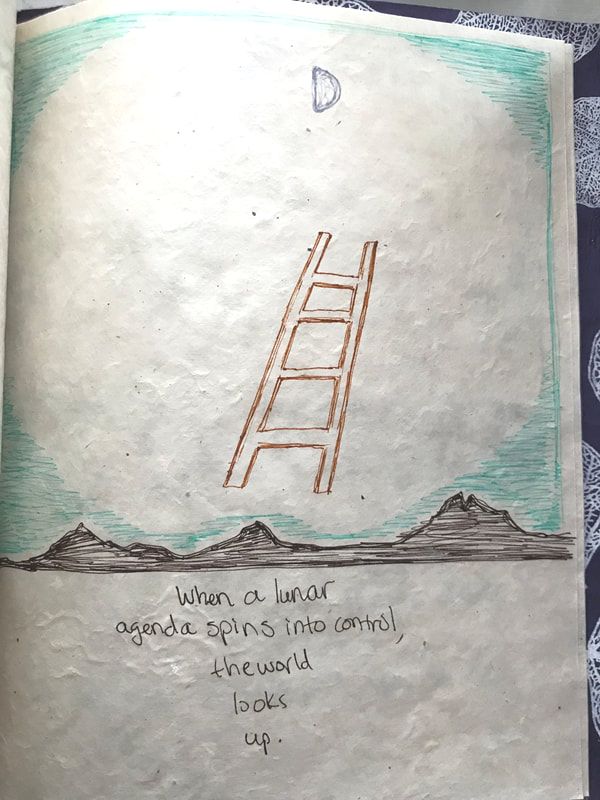 When a lunar
agenda spins into control,
the world
looks
up.